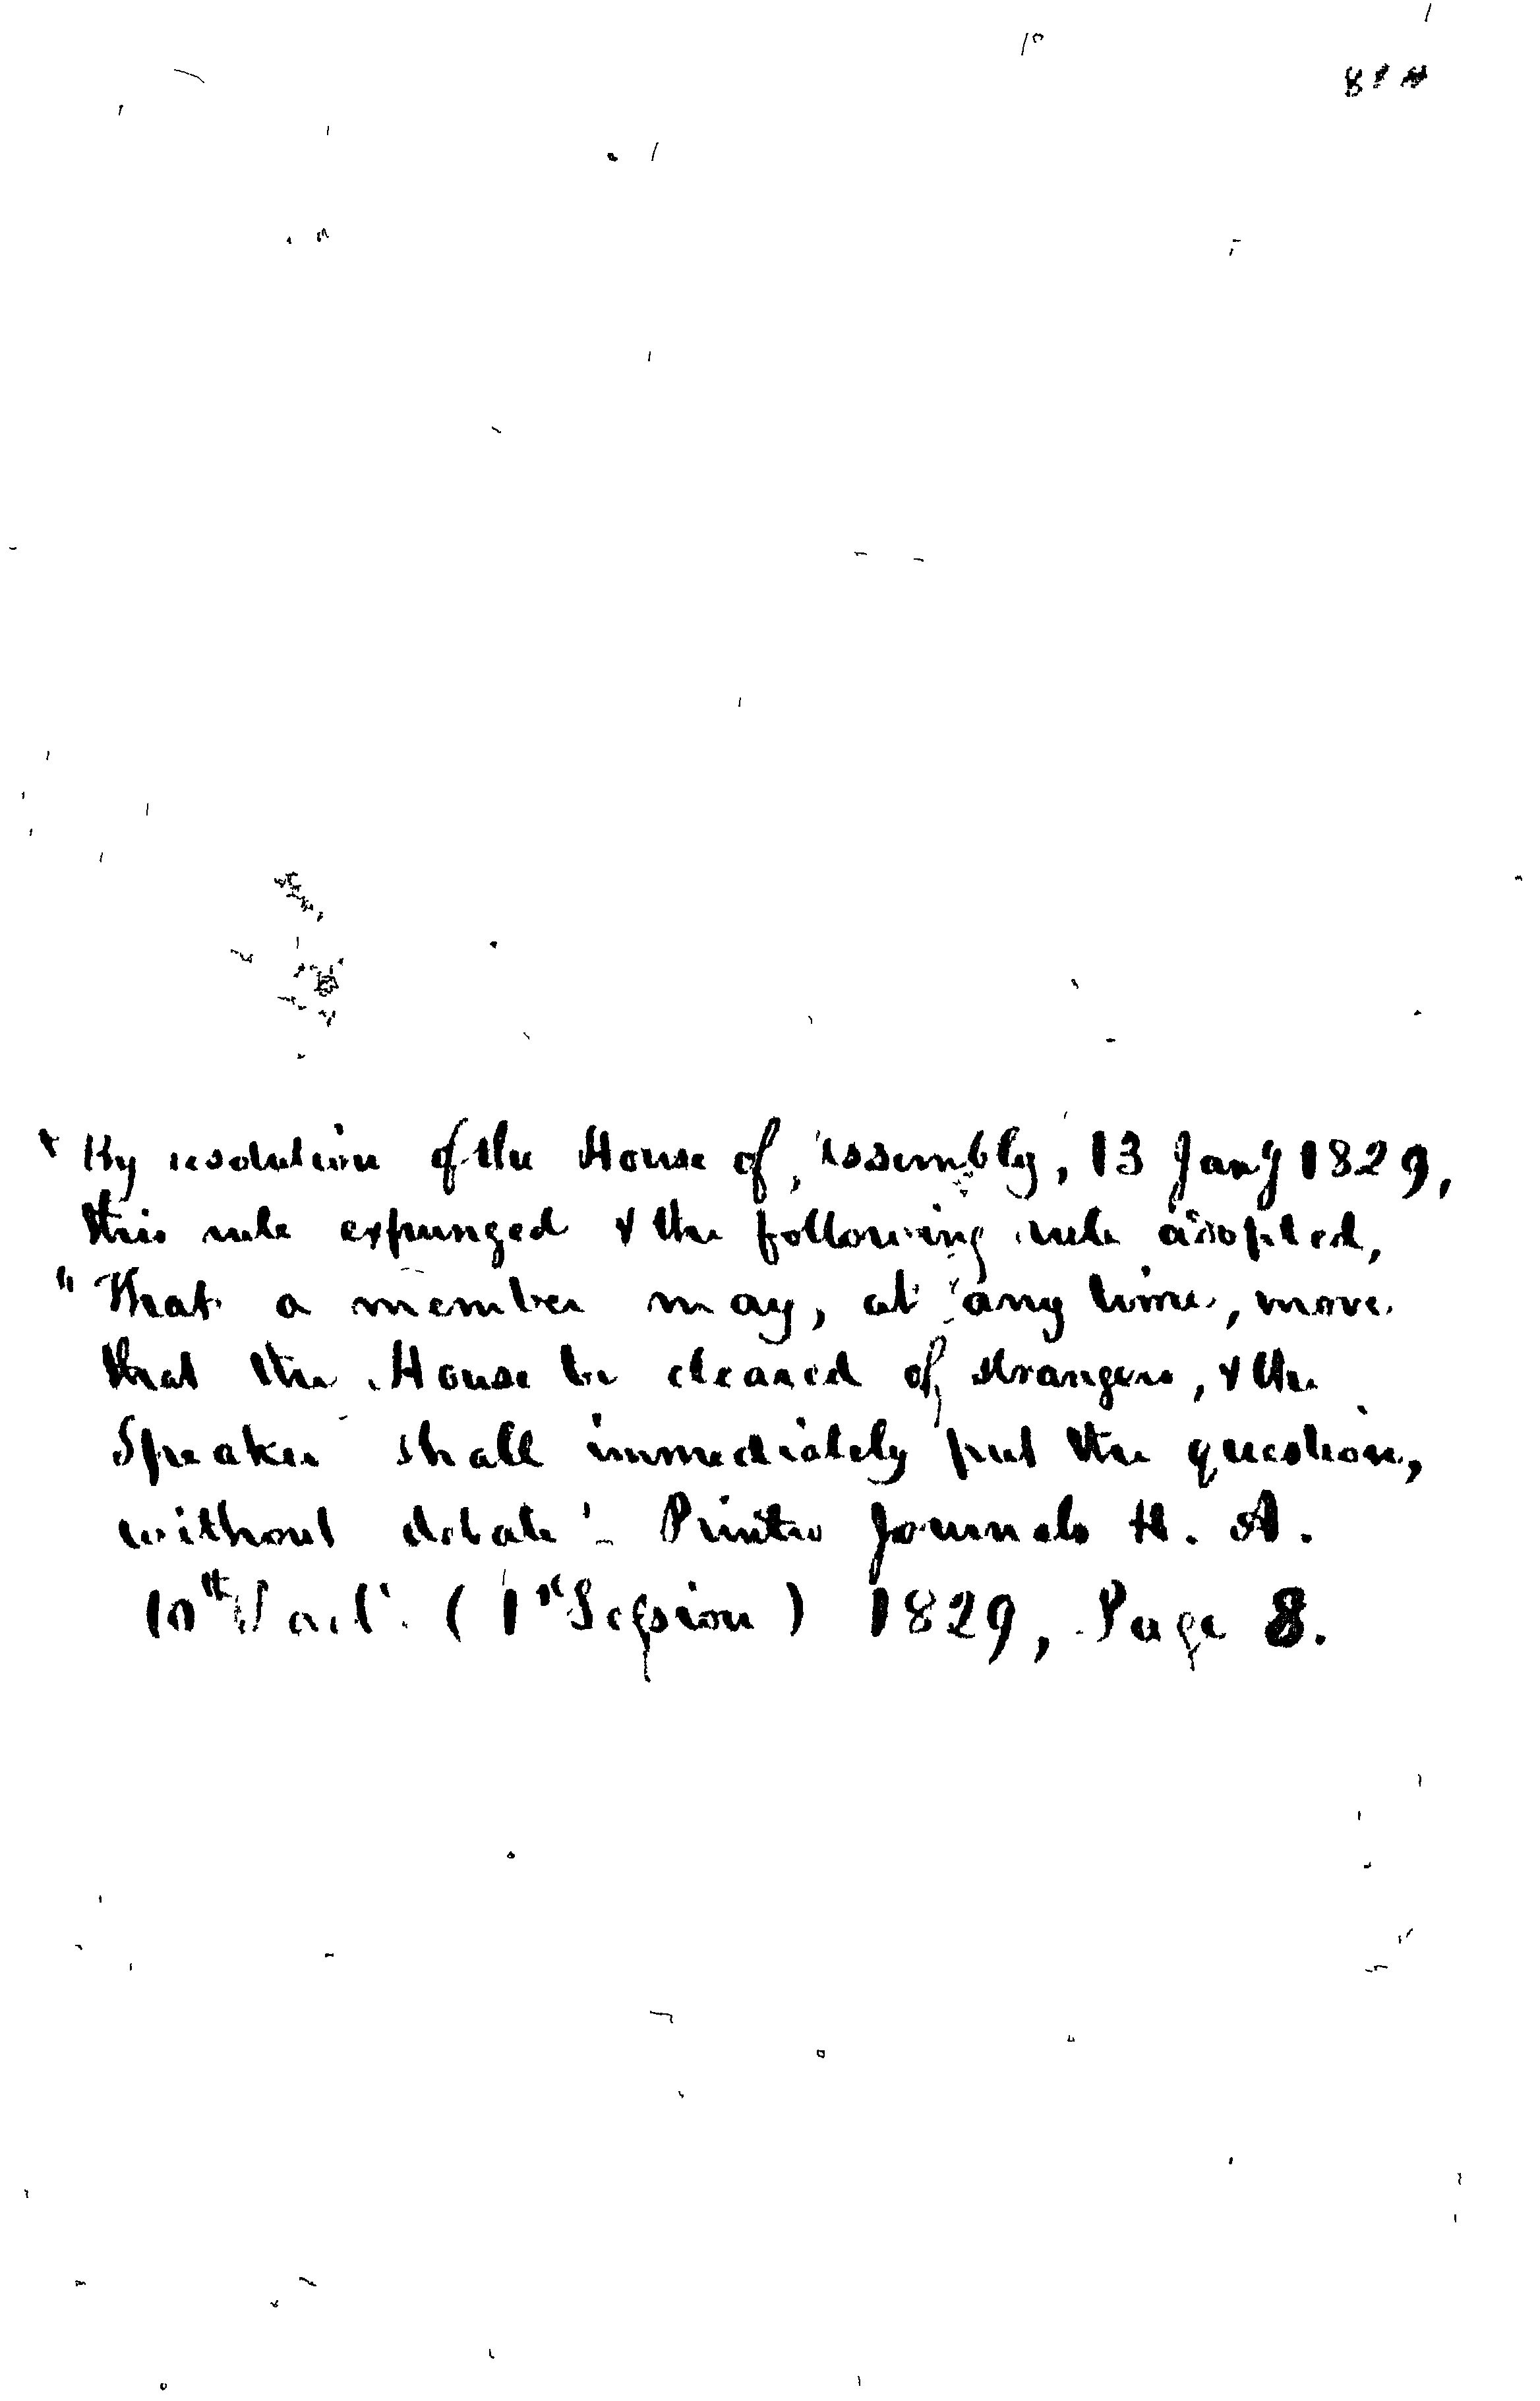 * By resolution of the House of Assembly, 13 Jany 1829,
this rule expunged & the following rule adopted,
"That a member may, at any time, move
that the House be cleared of strangers, & the
Speaker shall immediately put the question,
without debate'_ Printed Journals H. A.
10th Parlt. (1st Session) 1829, Page 8.